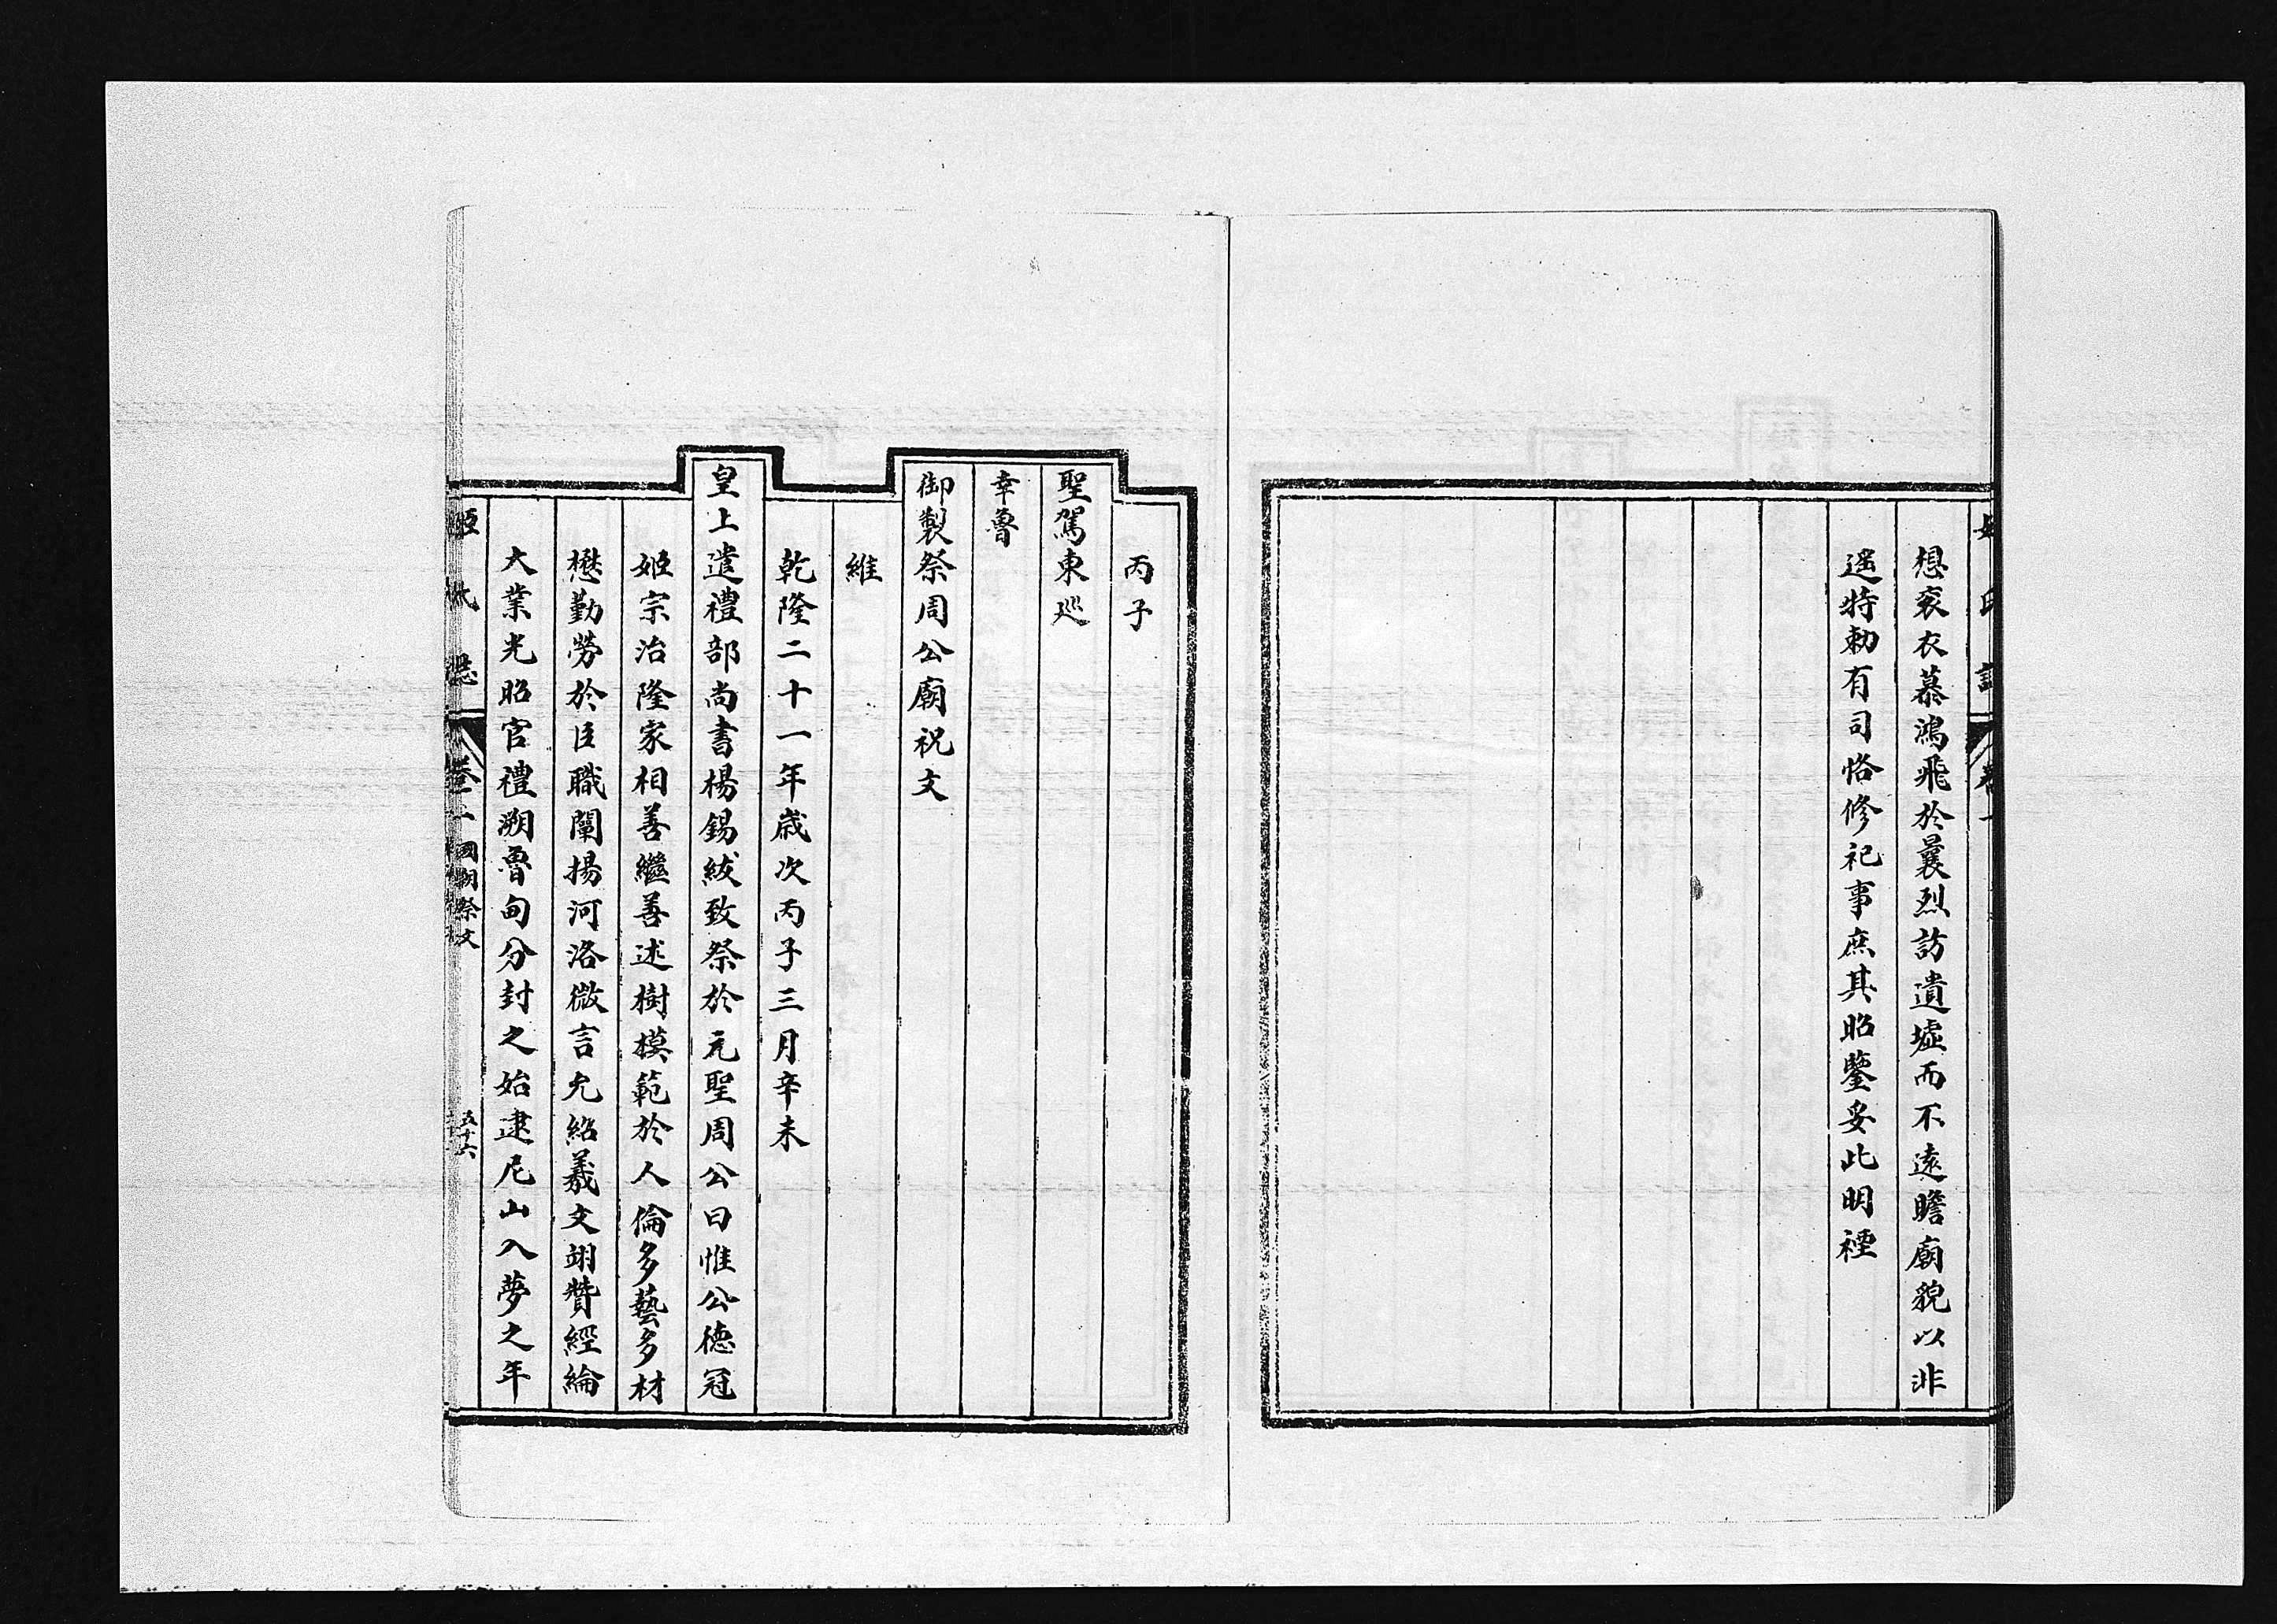 想衮衣慕鴻飛於曩烈訪遺墟而不遠瞻廟貌以非
遥特勅有司恪修祀事庶其昭鑒妥此明禋
丙子
聖駕東廵
幸魯
御製祭周公廟祝文
維
乾隆二十一年歳次丙子三月辛未
皇上遣禮部尚書楊錫紱致祭於元聖周公曰惟公德冠
姬宗治隆家相善繼善述樹模範於人倫多藝多材
懋勤勞於臣職闡揚河洛微言允紹羲文翊贊經綸
大業光昭官禮溯魯甸分封之始逮尼山入夢之年
姬氏誌 卷一 國朝祭文 五十六